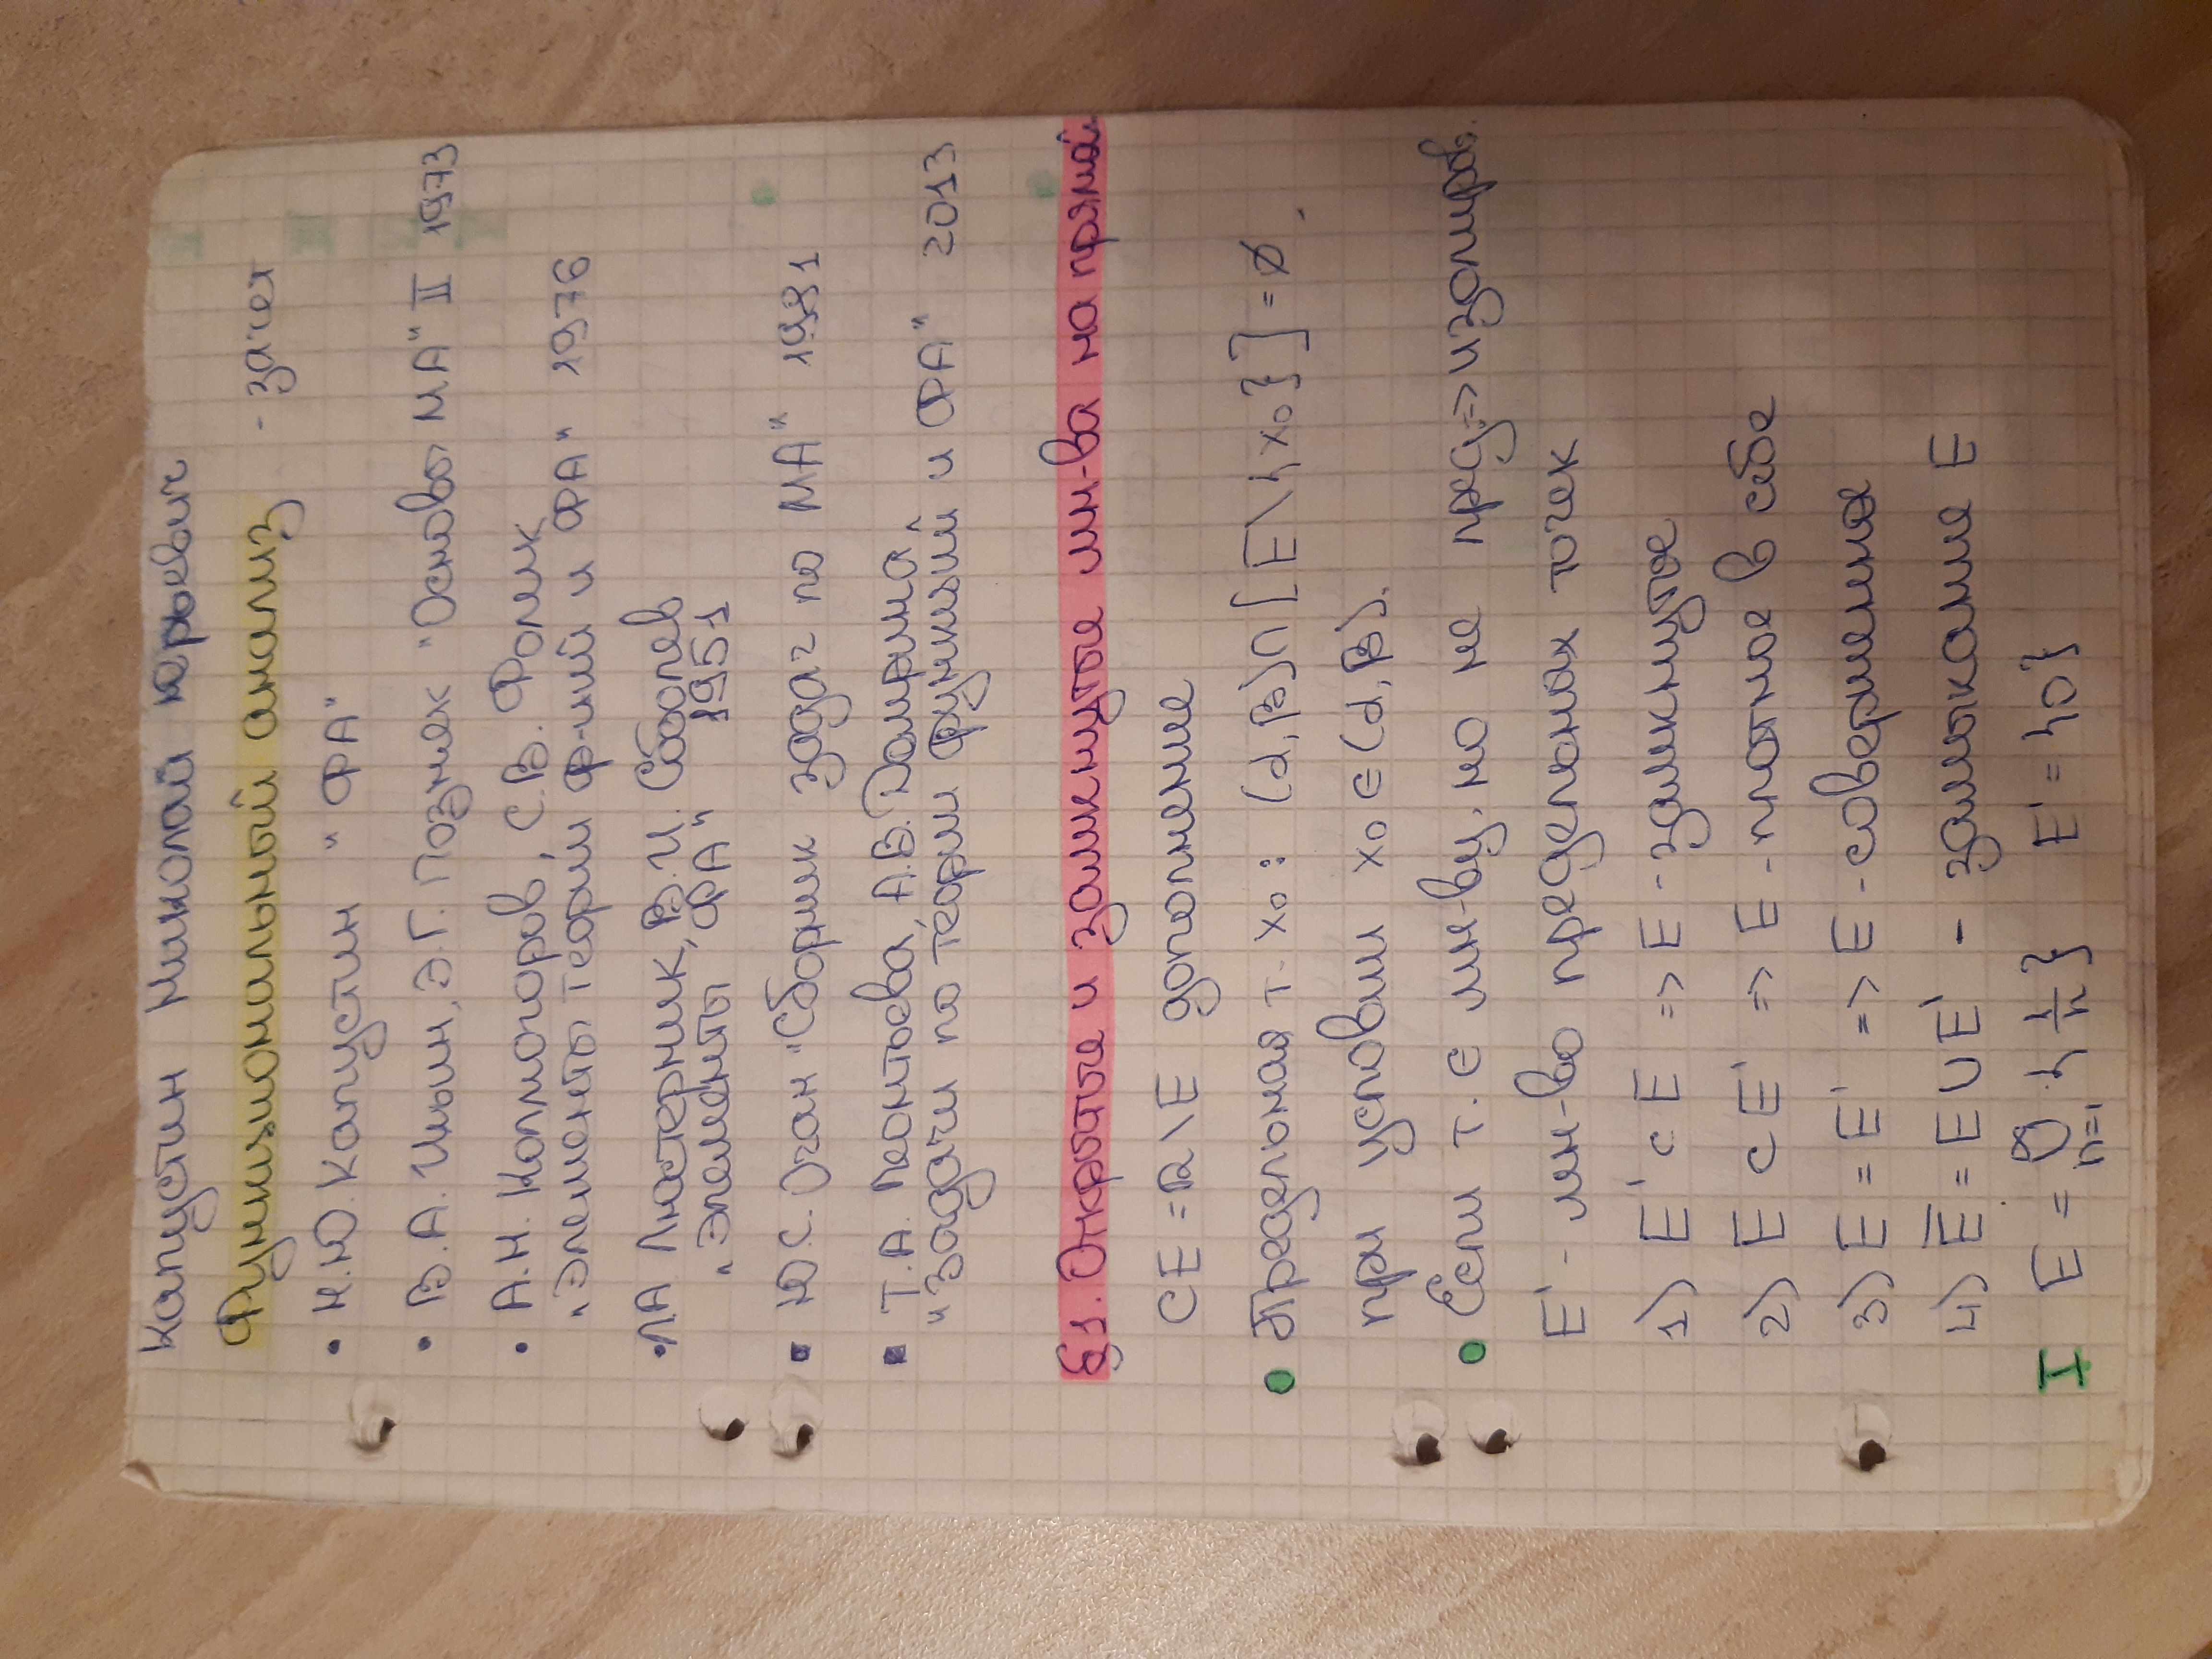 Капустин Николай Юрьевич
Функциональный анализ - зачет
• Н.Ю. Капустин "ФА"
• В.А. Ильин, Э.Г. Позняк "Основы МА" II 1973
• А.Н. Колмогоров, С.В. Фомин
"Элементы теории ф-ций и ФА" 1976
• ЛА Люстерник, В.И. Соболев
"Элементы ФА" 1951
▪ Ю.С. Очан "Сборник задач по МА" 1981
▪ Т.А. Леонтьева, А.В. Домрина
"Задачи по теории функций и ФА" 2013
§1. Открытые и замкнутые мн-ва на прямой.
CE = R \ E дополнение
• Предельная т. x₀: (α, β) ∩ [E \ {x₀}] = ∅,
при условии x₀ ∈ (α, β).
• Если т. ∈ мн-ву, но не пред. => изолиров.
E' - мн-во предельных точек
1) E' ⊂ E => E - замкнутое
2) E ⊂ E' => E - плотное в себе
3) E = E' => E - совершенное
4) E̅ = E ∪ E' - замыкание E
I E = ⋃_{n=1}^{∞} {1/n} E' = {0}